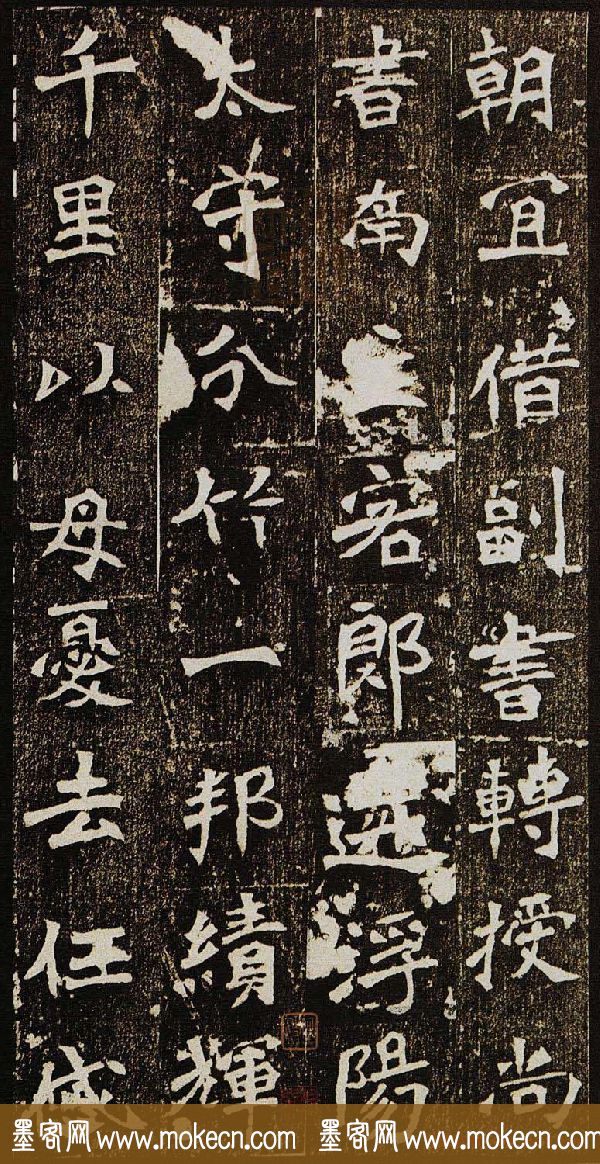 朝冝借副書轉授尚
書南主客郎遷浮陽
太守分竹一邦績輝
千里以母憂去任
墨客网 www.mokecn.com 墨客网 www.mokecn.com